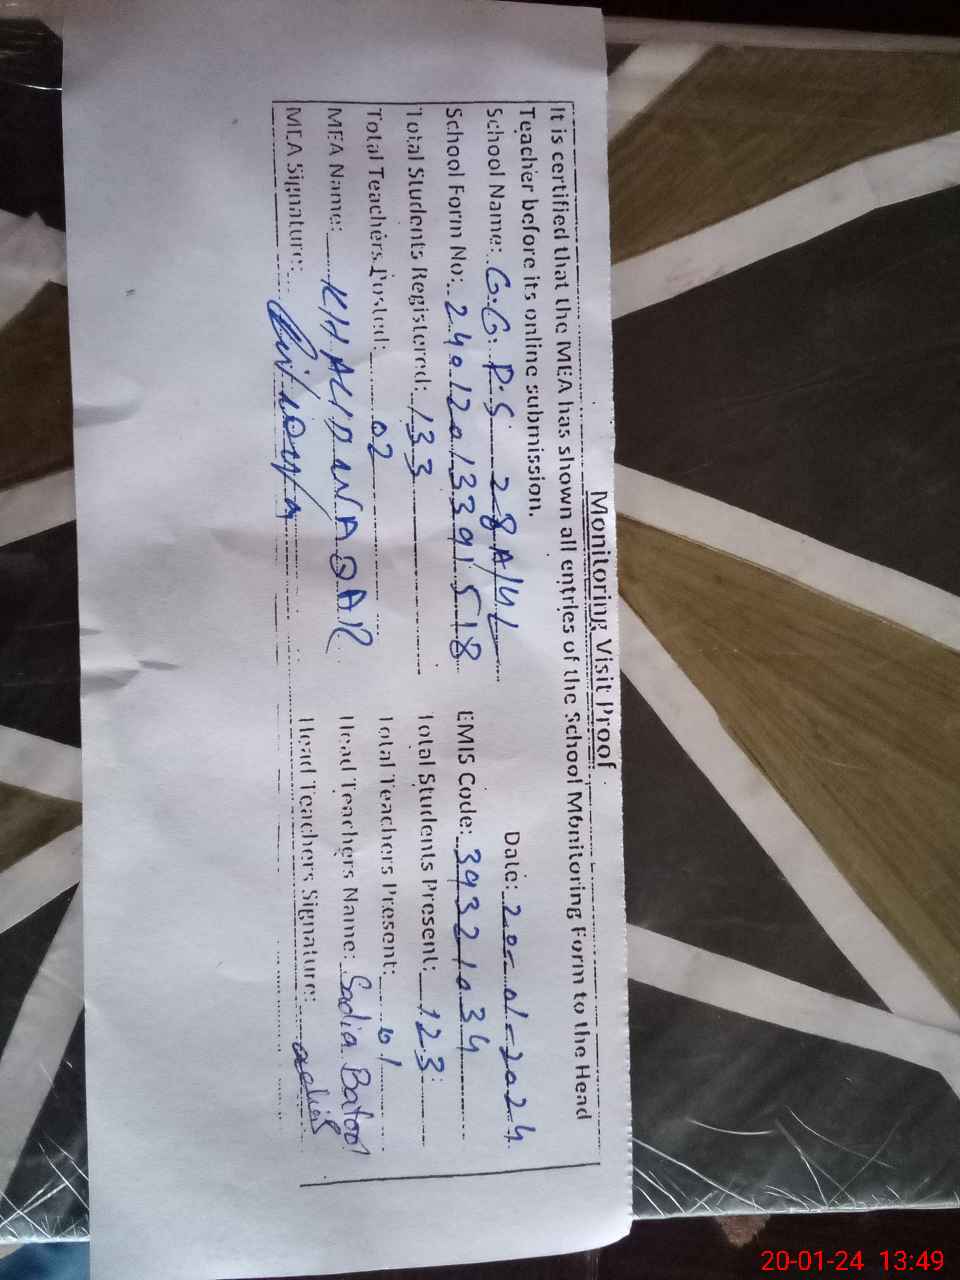 Monitoring Visit Proof
It is certified that the MEA has shown all entries of the School Monitoring Form to the Head
Teacher before its online submission. Date: 20-01-2024
School Name: G.G.P.S 28A/4L
School Form No: 24012013391518 EMIS Code: 39321034
Total Students Registered: 133 Total Students Present: 123
Total Teachers Posted: 02 Total Teachers Present: 01
MEA Name: KHALID WAQAR Head Teachers Name: Sadia Batool
MEA Signature: Head Teachers Signature:
20-01-24 13:49